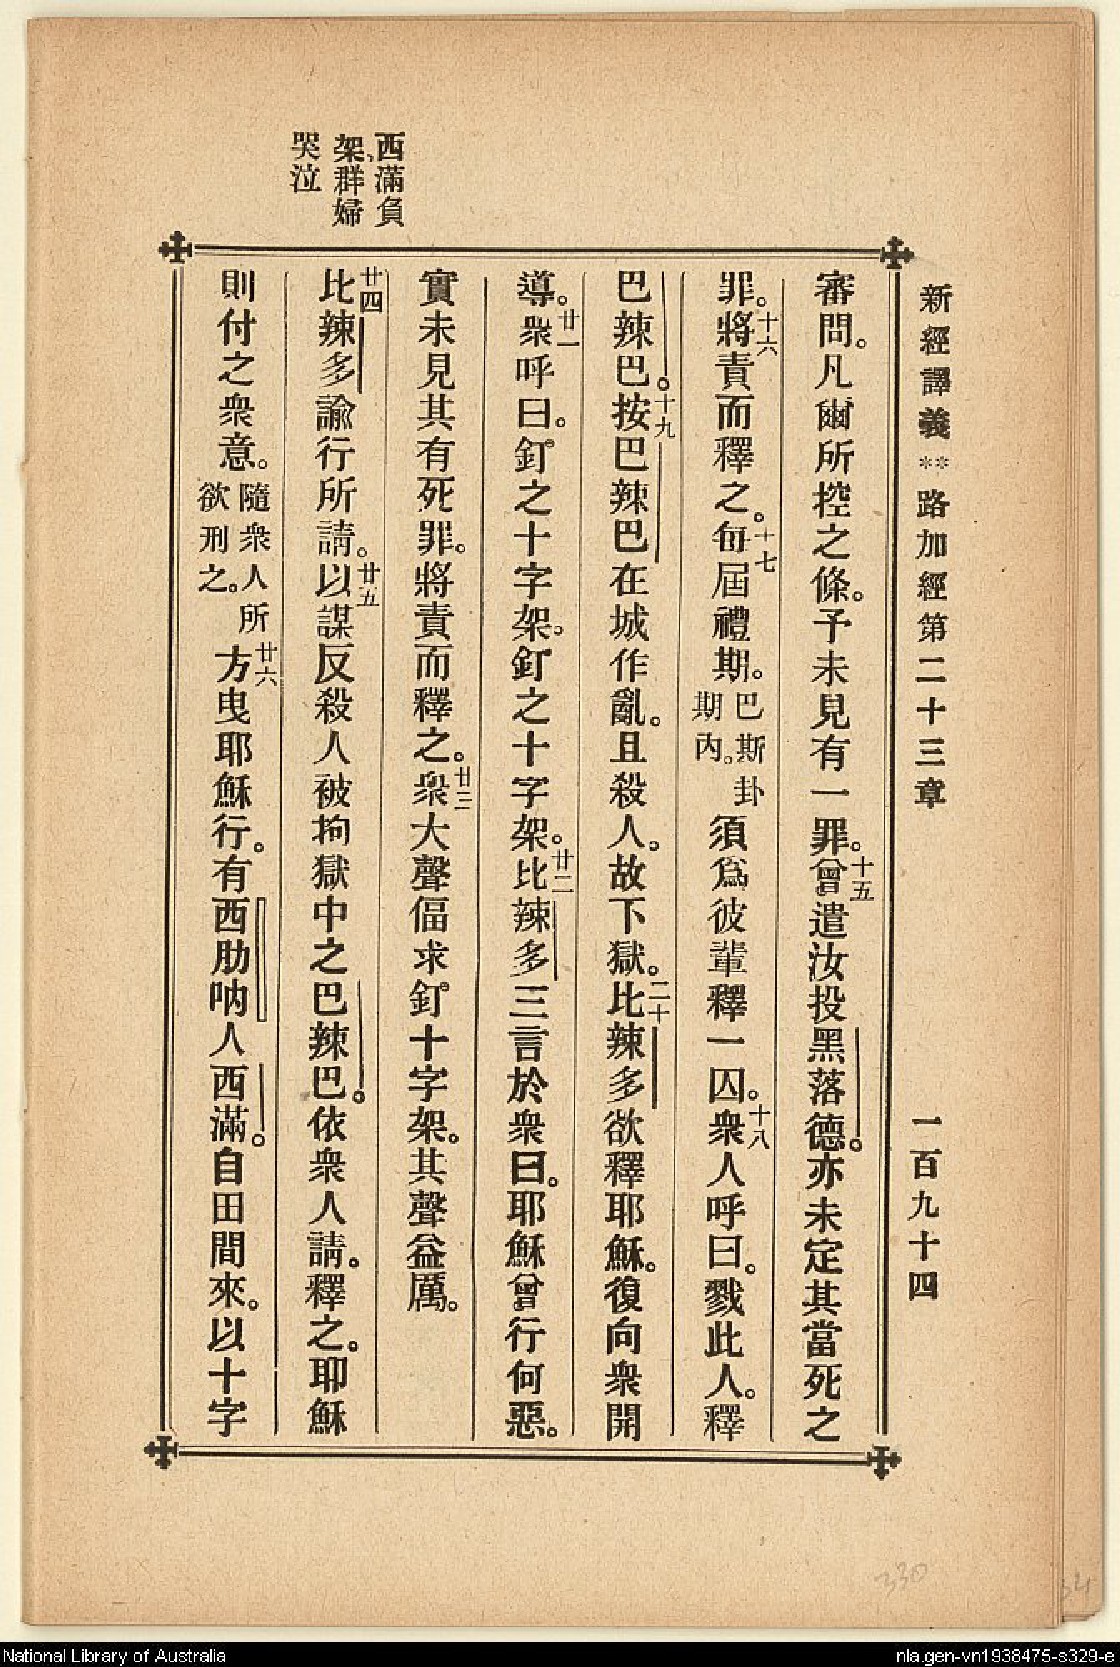 新經譯義 ** 路加經第二十三章 一百九十四
審問。凡爾所控之條。予未見有一罪。十五曾遣汝投黑落德。亦未定其當死之
罪。十六將責而釋之。十七每屆禮期。巴斯卦期內。須爲彼輩釋一囚。十八衆人呼曰。戮此人。釋
巴辣巴。十九按巴辣巴在城作亂。且殺人。故下獄。二十比辣多欲釋耶穌。復向衆開
導。廿一衆呼曰。釘之十字架。釘之十字架。廿二比辣多三言於衆曰。耶穌曾行何惡。
實未見其有死罪。將責而釋之。廿三衆大聲偪求釘十字架。其聲益厲。
廿四比辣多諭行所請。廿五以謀反殺人被拘獄中之巴辣巴。依衆人請。釋之。耶穌
則付之衆意。隨衆人所欲刑之。廿六方曳耶穌行。有西肋呐人西滿。自田間來。以十字
西滿負
架、群婦
哭泣
330
34
National Library of Australia
nla.gen-vn1938475-s329-e